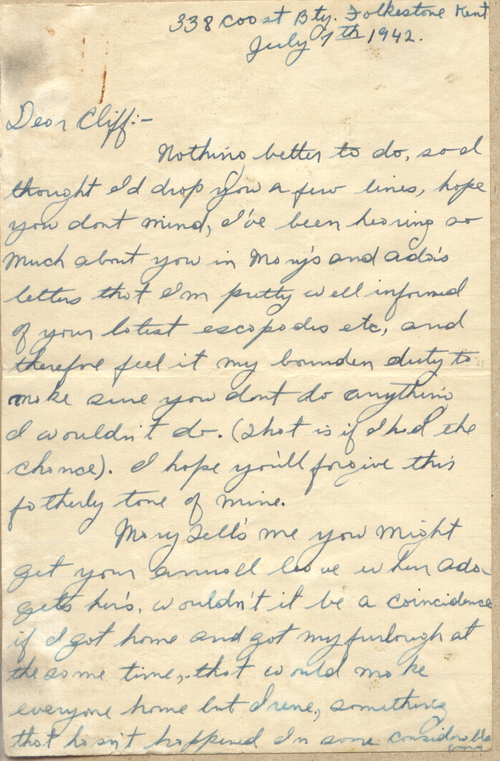 338 Coast Bty. Folkestone Kent
July 7th 1942.
Dear Cliff:-
Nothing better to do, so I
thought I'd drop you a few lines, hope
you dont mind, I've been hearing so
much about you in Mary's and Ada's
letters that I'm pretty well informed
of your latest escapades etc, and
therefore feel it my bounden duty to
make sure you dont do anything
I wouldn't do. (That is if I had the
chance). I hope you'll forgive this
fatherly tone of mine.
Mary tell's me you might
get your annual leave when Ada
gets her's, wouldn't it be a coincidence
if I got home and got my furlough at
the same time, that would make
everyone home but Irene, something
that hasn't happened in some considerable
time